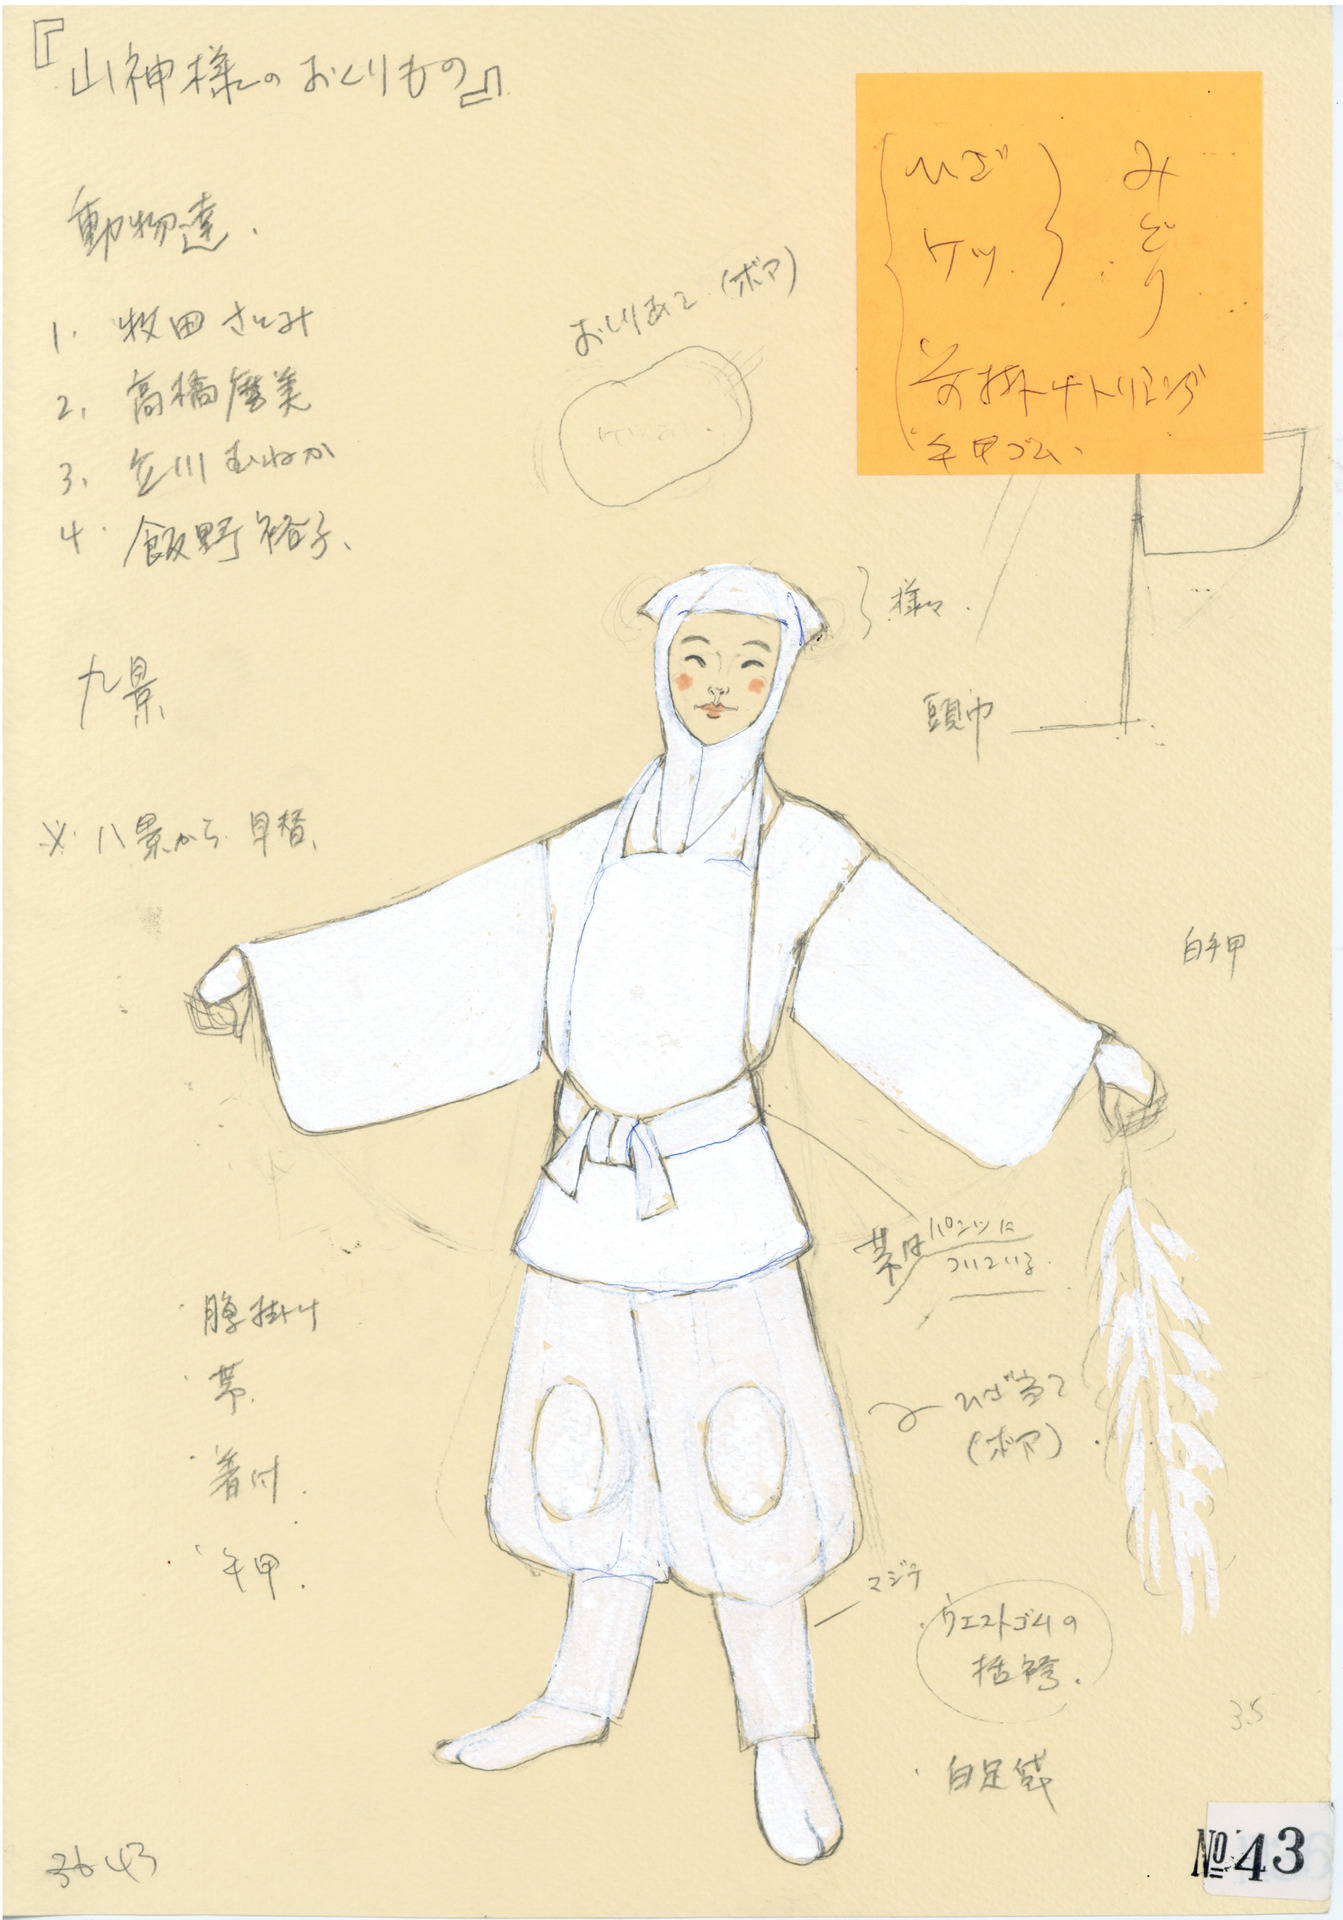 『山神様のおくりもの』
動物達.
1. 牧田 さとみ
2. 高橋 磨美
3. 立川 むねか
4. 飯野 裕子.
九景
※ 八景から 早替.
おしりあて (ボア)
ひざ
ケツ.
みどり
手甲ゴム.
様々.
頭巾
白手甲
帯はパンツに
ついている.
ひざ当て
(ボア)
マジテ
ウエストゴムの
括袴.
・白足袋
・腹掛け
・帯.
・着付.
・手甲.
35
36 43
№43